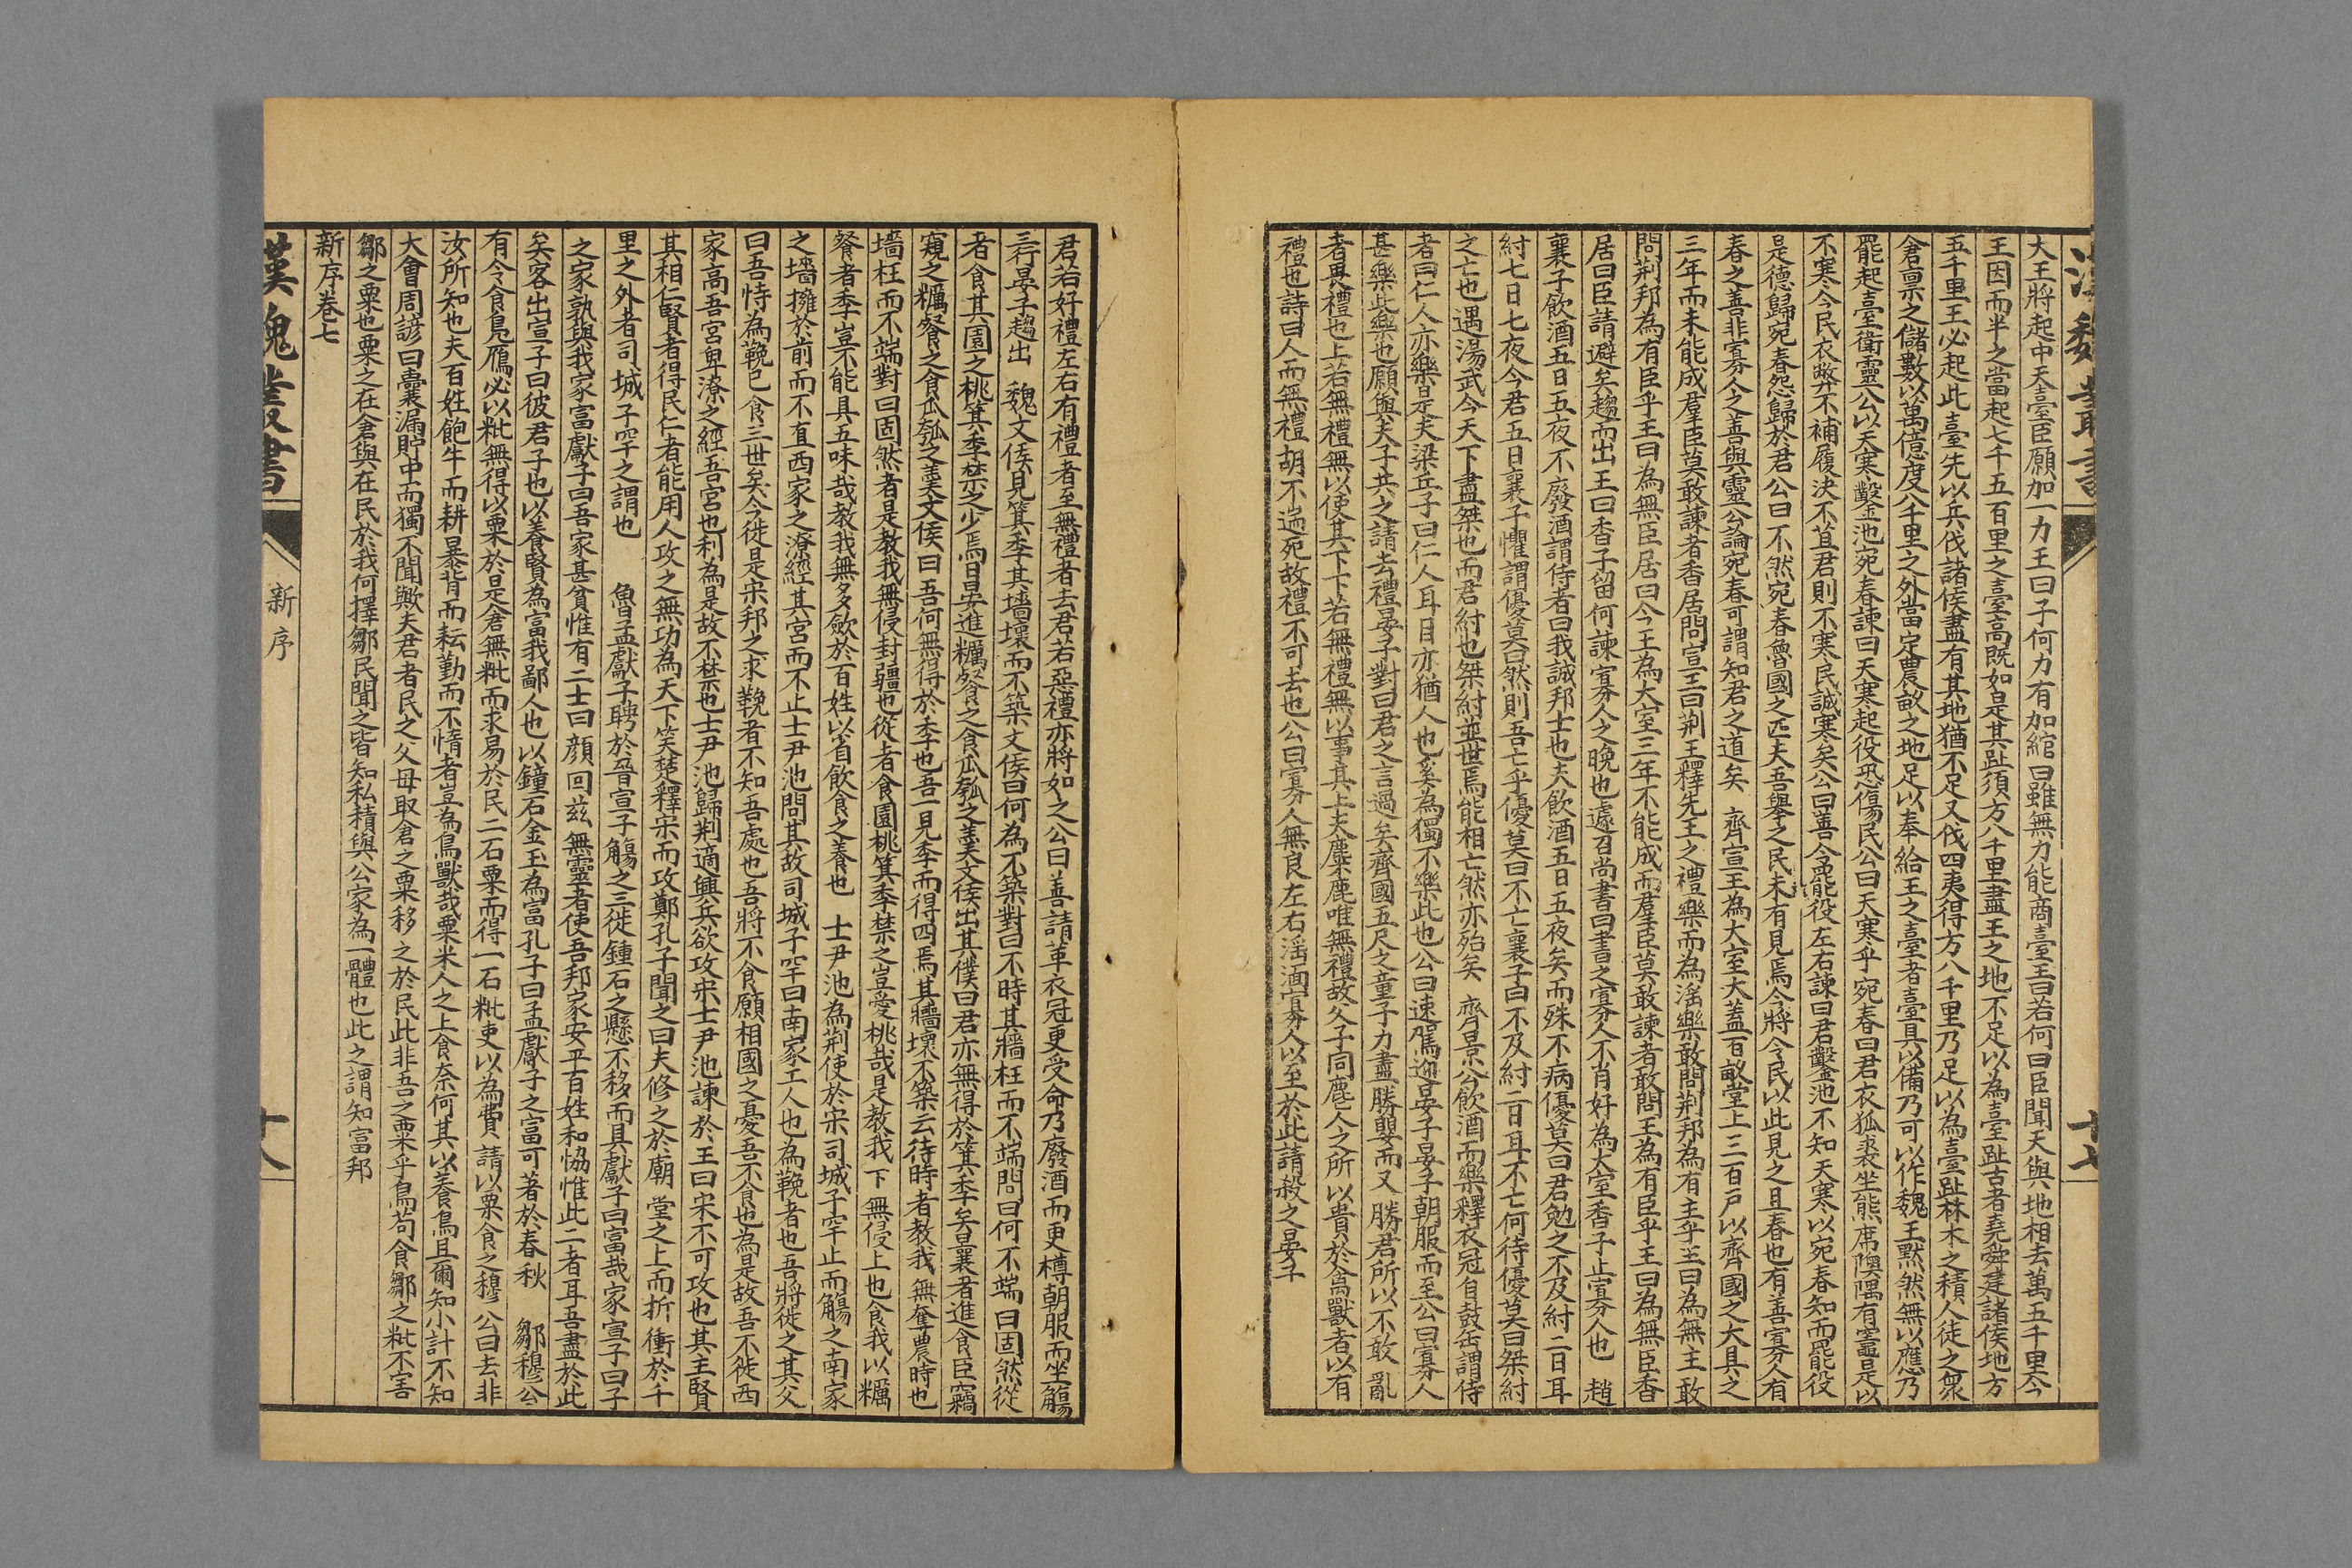 漢魏叢書
十七
大王將起中天臺臣願加一力王曰子何力有加綰曰雖無力能商臺王曰若何曰臣聞天與地相去萬五千里今
王因而半之當起七千五百里之臺高既如是其趾須方八千里盡王之地不足以為臺趾古者堯舜建諸侯地方
五千里王必起此臺先以兵伐諸侯盡有其地猶不足又伐四夷得方八千里乃足以為臺趾林木之積人徒之衆
倉禀之儲數以萬億度八千里之外當定農畝之地足以奉給王之臺者臺具以備乃可以作魏王黙然無以應乃
罷起臺衛靈公以天寒鑿池宛春諫曰天寒起役恐傷民公曰天寒乎宛春曰君衣狐裘坐熊席隩隅有竈是以
不寒今民衣弊不補履決不苴君則不寒民誠寒矣公曰善令罷役左右諫曰君鑿池不知天寒以宛春知而罷役
是德歸宛春怨歸於君公曰不然宛春魯國之匹夫吾舉之民未有見焉今將令民以此見之且春也有善寡人有
春之善非寡人之善與靈公論宛春可謂知君之道矣　齊宣王為大室大蓋百畝堂上三百戶以齊國之大具之
三年而未能成羣臣莫敢諫者香居問宣王曰荆王釋先王之禮樂而為滛樂敢問荆邦為有主乎王曰為無主敢
問荆邦為有臣乎王曰為無臣居曰今王為大室三年不能成而羣臣莫敢諫者敢問王為有臣乎王曰為無臣香
居曰臣請避矣趨而出王曰香子留何諫寡人之晚也遽召尚書曰書之寡人不肖好為大室香子止寡人也　趙
襄子飲酒五日五夜不廢酒謂侍者曰我誠邦士也夫飲酒五日五夜矣而殊不病優莫曰君勉之不及紂二日耳
紂七日七夜今君五日襄子懼謂優莫曰然則吾亡乎優莫曰不亡襄子曰不及紂二日耳不亡何待優莫曰桀紂
之亡也遇湯武今天下盡桀也而君紂也桀紂並世焉能相亡然亦殆矣　齊景公飲酒而樂釋衣冠自鼓缶謂侍
者曰仁人亦樂是夫梁丘子曰仁人耳目亦猶人也奚為獨不樂此也公曰速駕迎晏子晏子朝服而至公曰寡人
甚樂此樂也願與夫子共之請去禮晏子對曰君之言過矣齊國五尺之童子力盡勝嬰而又勝君所以不敢亂
者畏禮也上若無禮無以使其下下若無禮無以事其上夫麋鹿唯無禮故父子同麀人之所以貴於禽獸者以有
禮也詩曰人而無禮胡不遄死故禮不可去也公曰寡人無良左右滛湎寡人以至於此請殺之晏子
君若好禮左右有禮者至無禮者去君若惡禮亦將如之公曰善請革衣冠更受命乃廢酒而更樽朝服而坐觴
三行晏子趨出　魏文侯見箕季其墻壞而不築文侯曰何為不築對曰不時其牆枉而不端問曰何不端曰固然從
者食其園之桃箕季禁之少焉日晏進糲餐之食瓜瓠之羹文侯出其僕曰君亦無得於箕季矣曩者進食臣竊
窺之糲餐之食瓜瓠之羹文侯曰吾何無得於季也吾一見季而得四焉其牆壞不築云待時者教我無奪農時也
墻枉而不端對曰固然者是教我無侵封疆也從者食園桃箕季禁之豈愛桃哉是教我下無侵上也食我以糲
餐者季豈不能具五味哉教我無多斂於百姓以省飲食之養也　士尹池為荆使於宋司城子罕止而觴之南家
之墻擁於前而不直西家之潦經其宮而不止士尹池問其故司城子罕曰南家工人也為鞔者也吾將徙之其父
曰吾恃為鞔已食三世矣今徙是宋邦之求鞔者不知吾處也吾將不食願相國之憂吾不食也為是故吾不徙西
家高吾宮卑潦之經吾宮也利為是故不禁也士尹池歸荆適興兵欲攻宋士尹池諫於王曰宋不可攻也其主賢
其相仁賢者得民仁者能用人攻之無功為天下笑楚釋宋而攻鄭孔子聞之曰夫修之於廟堂之上而折衝於千
里之外者司城子罕之謂也　魯孟獻子聘於晉宣子觴之三徙鍾石之懸不移而具獻子曰富哉家宣子曰子
之家孰與我家富獻子曰吾家甚貧惟有二士曰顏回兹無靈者使吾邦家安平百姓和恊惟此二者耳吾盡於此
矣客出宣子曰彼君子也以養賢為富我鄙人也以鐘石金玉為富孔子曰孟獻子之富可著於春秋　鄒穆公
有令食鳧鴈必以粃無得以粟於是倉無粃而求易於民二石粟而得一石粃吏以為費請以粟食之穆公曰去非
汝所知也夫百姓飽牛而耕暴背而耘勤而不惰者豈為鳥獸哉粟米人之上食奈何其以養鳥且爾知小計不知
大會周諺曰囊漏貯中而獨不聞歟夫君者民之父母取倉之粟移之於民此非吾之粟乎鳥苟食鄒之粃不害
鄒之粟也粟之在倉與在民於我何擇鄒民聞之皆知私積與公家為一體也此之謂知富邦
新序卷七
漢魏叢書
新序
十八